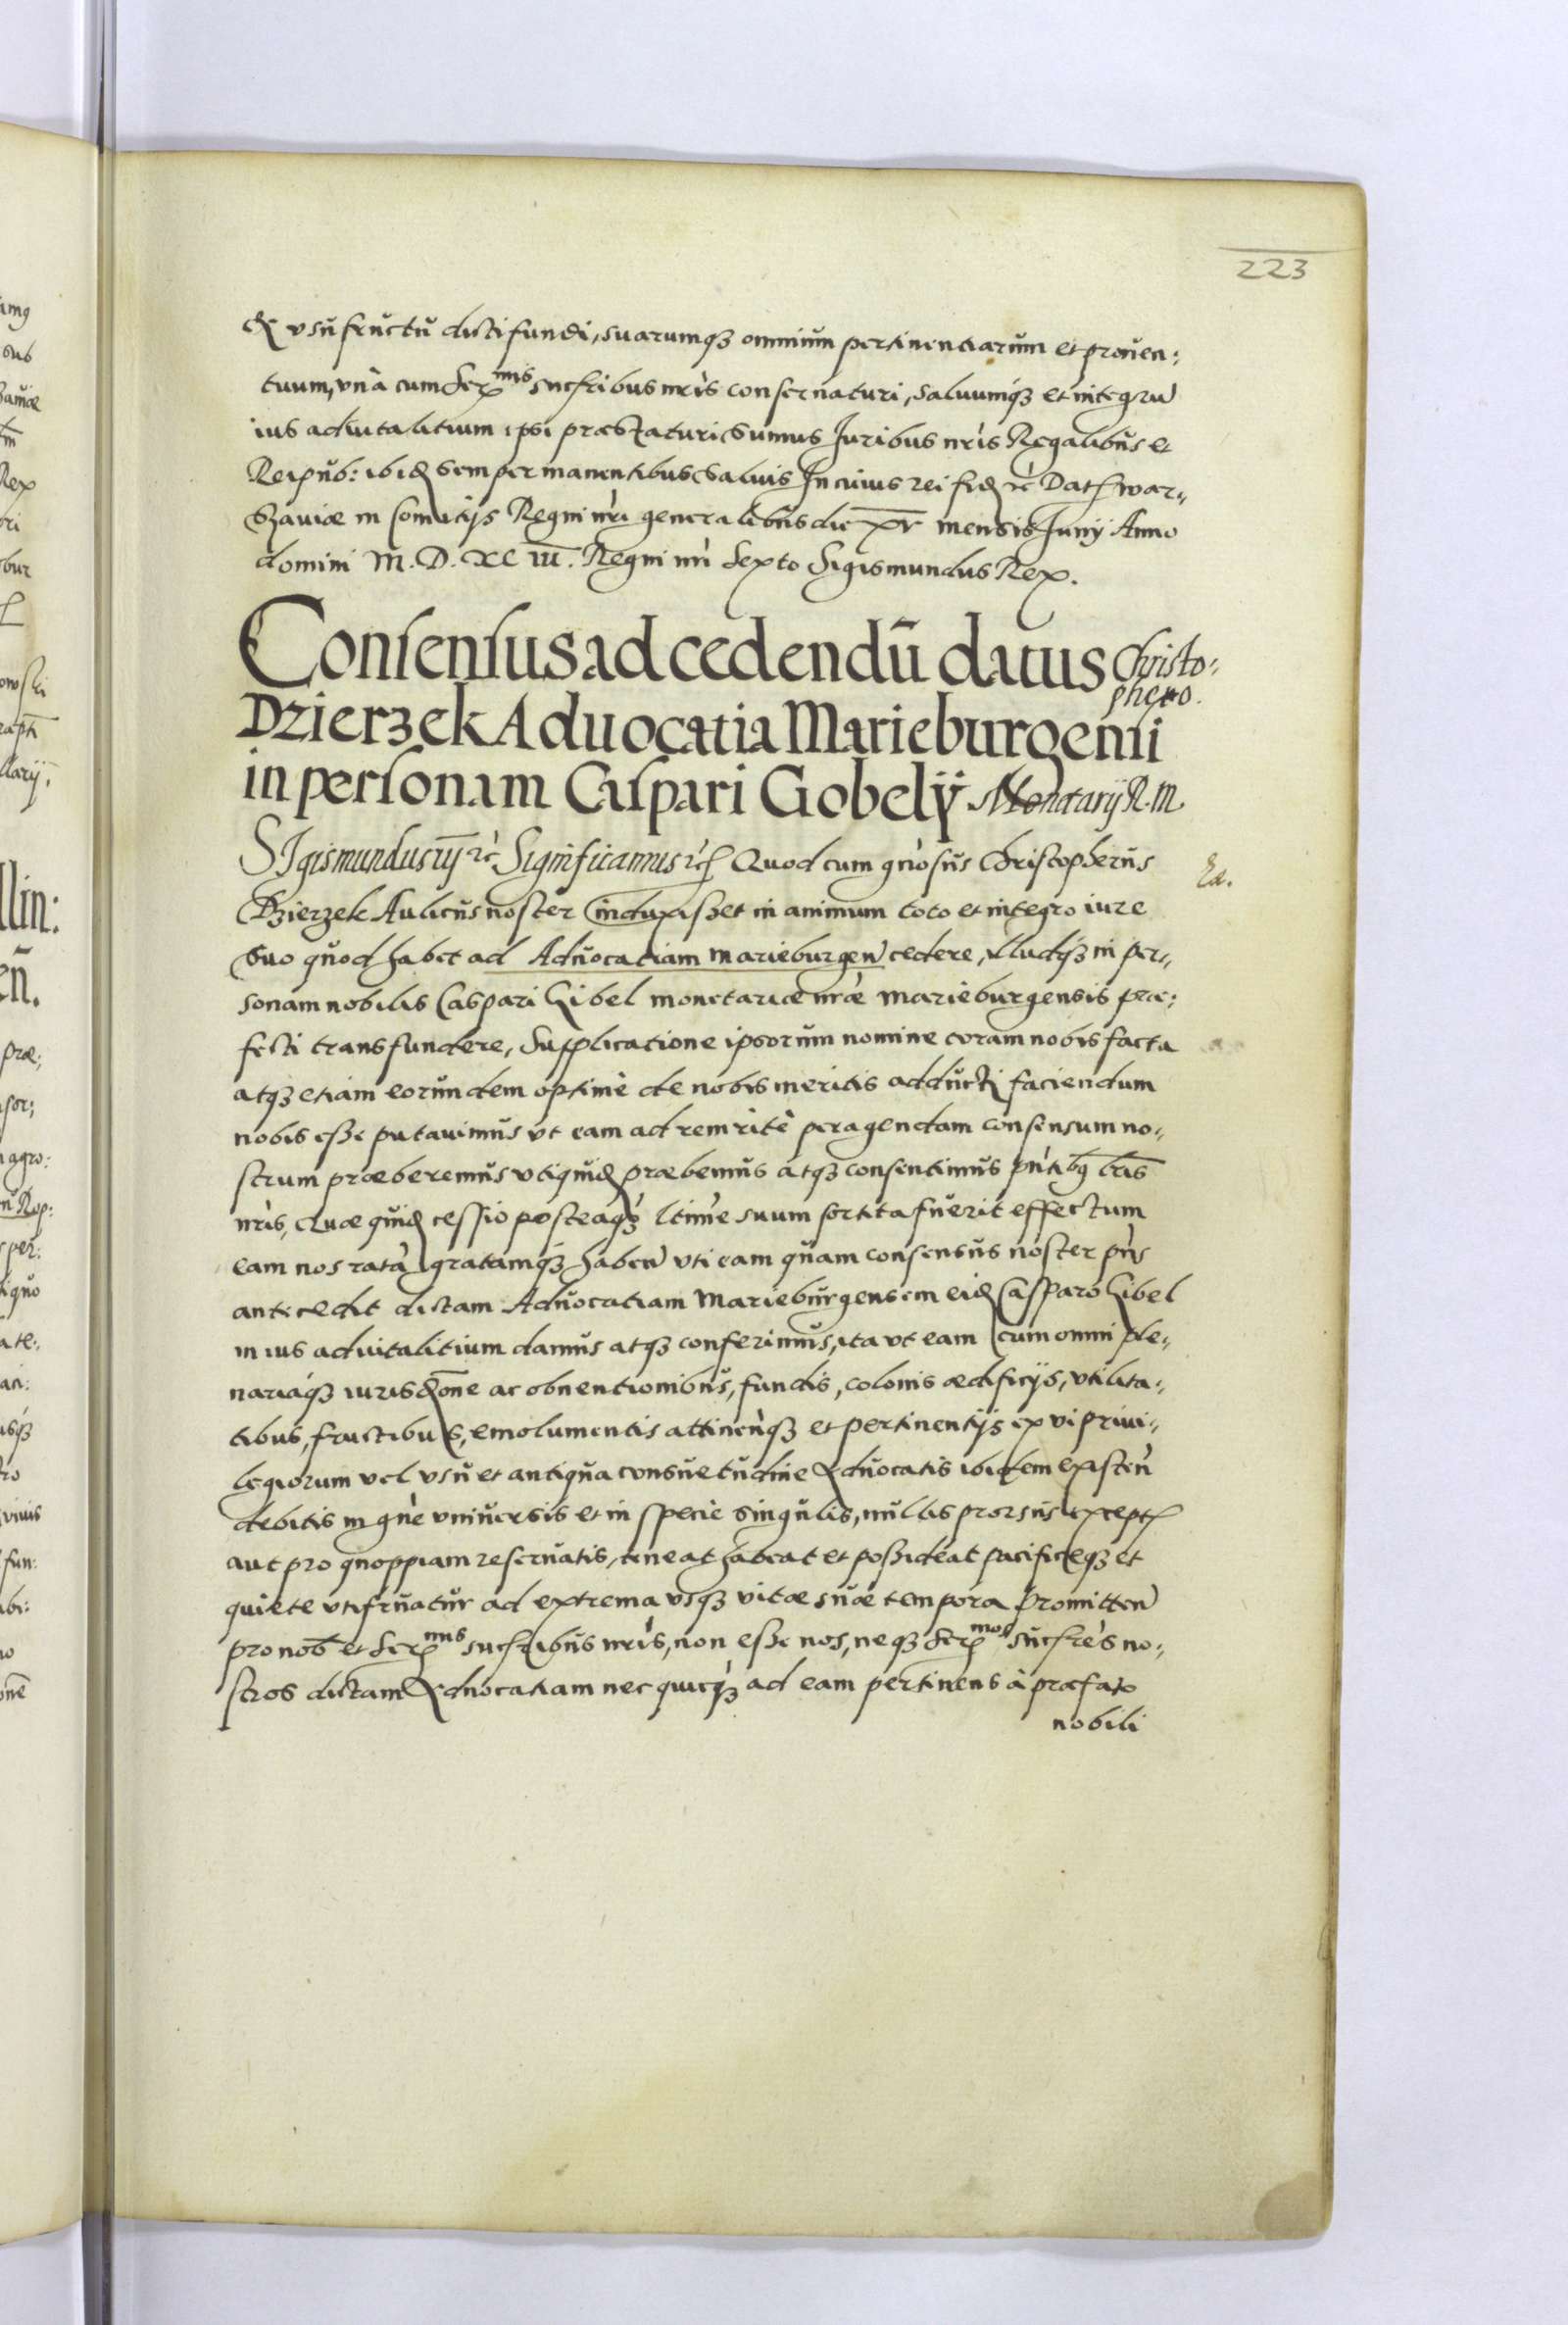 223
& vsufructu dicti fundi, suarumq3 omnium pertinentiarum et prouen:
tuum, vnà cum Ser^mis sucↄribus nrìs conseruaturi, saluumq3 et integrũ
ius aduitalitium ipsi præstaturi sumus Juribus nrìs Regalibus et
Reipub: ibid semper manentibus saluis In cuius rei fid rc̀ Dat war„
Szauiæ in Comitijs Regni nrì generalibus die xv mensis Junij Anno
domini M. D. XC iii. Regni nrì Sexto Sigismundus Rex.
Consensus ad cedendũ datus Christo:
phero.
Dzierzek Aduocatia Marieburgensi
in personam Caspari Gobelÿ Monetarij R. M.
SIgismundus iij rc̀ Significamus rc̀ Quod cum gnòsus Christopherus
Dzierzek Aulicus noster induxisset in animum toto et integro iure
suo quod habet ad Aduocatiam marieburgeñ cedere, illudq3 in per„
sonam nobilis Caspari Gibel monetariæ nræ̀ marieburgensis præ:
fecti transfundere, Supplicatione ipsorum nomine coram nobis facta
atq3 etiam eorundem optimè de nobis meritis adducti faciendum
nobis esse putauimus vt eam ad rem ritè peragendam consensum no„
strum præberemus vtiquid præbemus atq3 consentimus pntìbq lris
nrìs, Quæ quid cessio posteaq3 ltimè suum sortita fuerit effectum
eam nos ratà gratamq3 habeñ vti eam quam consensus noster pns
antecedit dictam Aduocatiam Marieburgensem eid Casparo Gibel
in ius aduitalitium damus atq3 conferimus, ita vt eam cum omni ple„
nariaq3 iurisdōne ac obuentionibus, fundis, colonis ædificijs, vtilita„
tibus, fructibus, emolumentis attineñq3 et pertinentijs ex vi priui„
legiorum vel vsu et antiqua consuetudine Aduocatis ibidem existeñ
debitis in gnè vniuersis et in specie singulis, nullis prorsus except
aut pro quoppiam reseruatis, teneat habeat et possideat pacificeq3 et
quiete vtifruatur ad extrema vsq3 vitæ suæ tempora Promitteñ
pro nob̄ et Ser^mis sucↄribus nrìs, non esse nos, neq3 Ser^mos sucↄrès no„
stros dictam Aduocatiam nec quicq3 ad eam pertinens à præfato
nobili